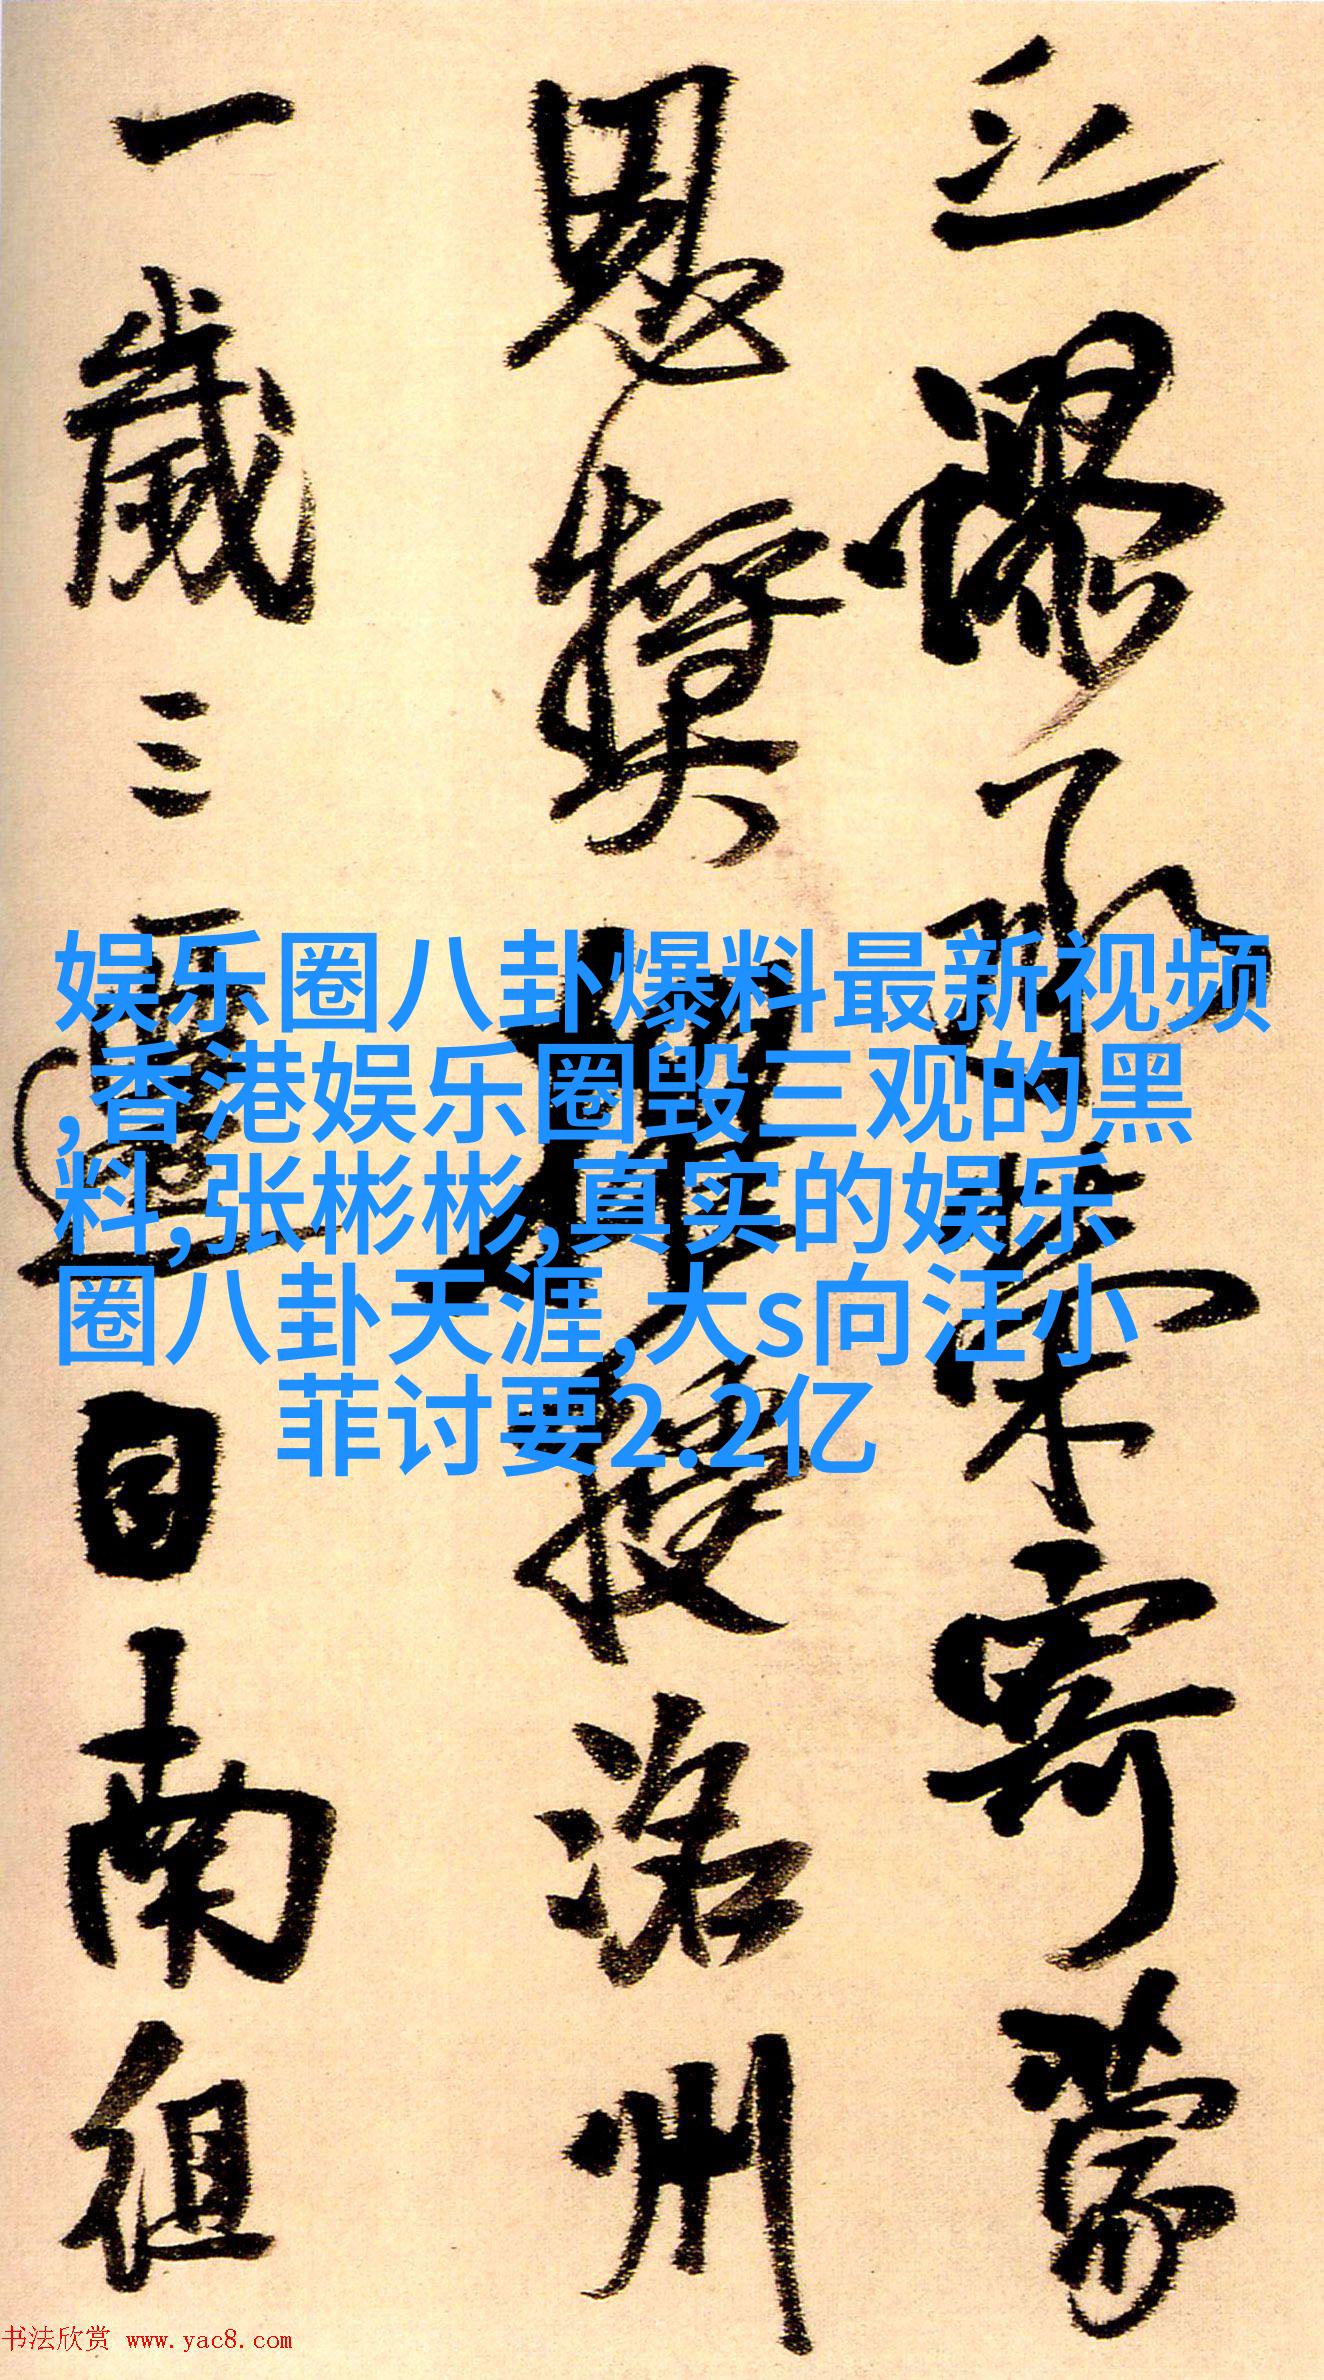 之谬承荣寄蒙
恩奬擢授洺州
一歲三遷目南徂
娱乐圈八卦爆料最新视频
,香港娱乐圈毁三观的黑
料,张彬彬,真实的娱乐
圈八卦天涯,大s向汪小
菲讨要2.2亿
书法欣赏 www.yac8.com